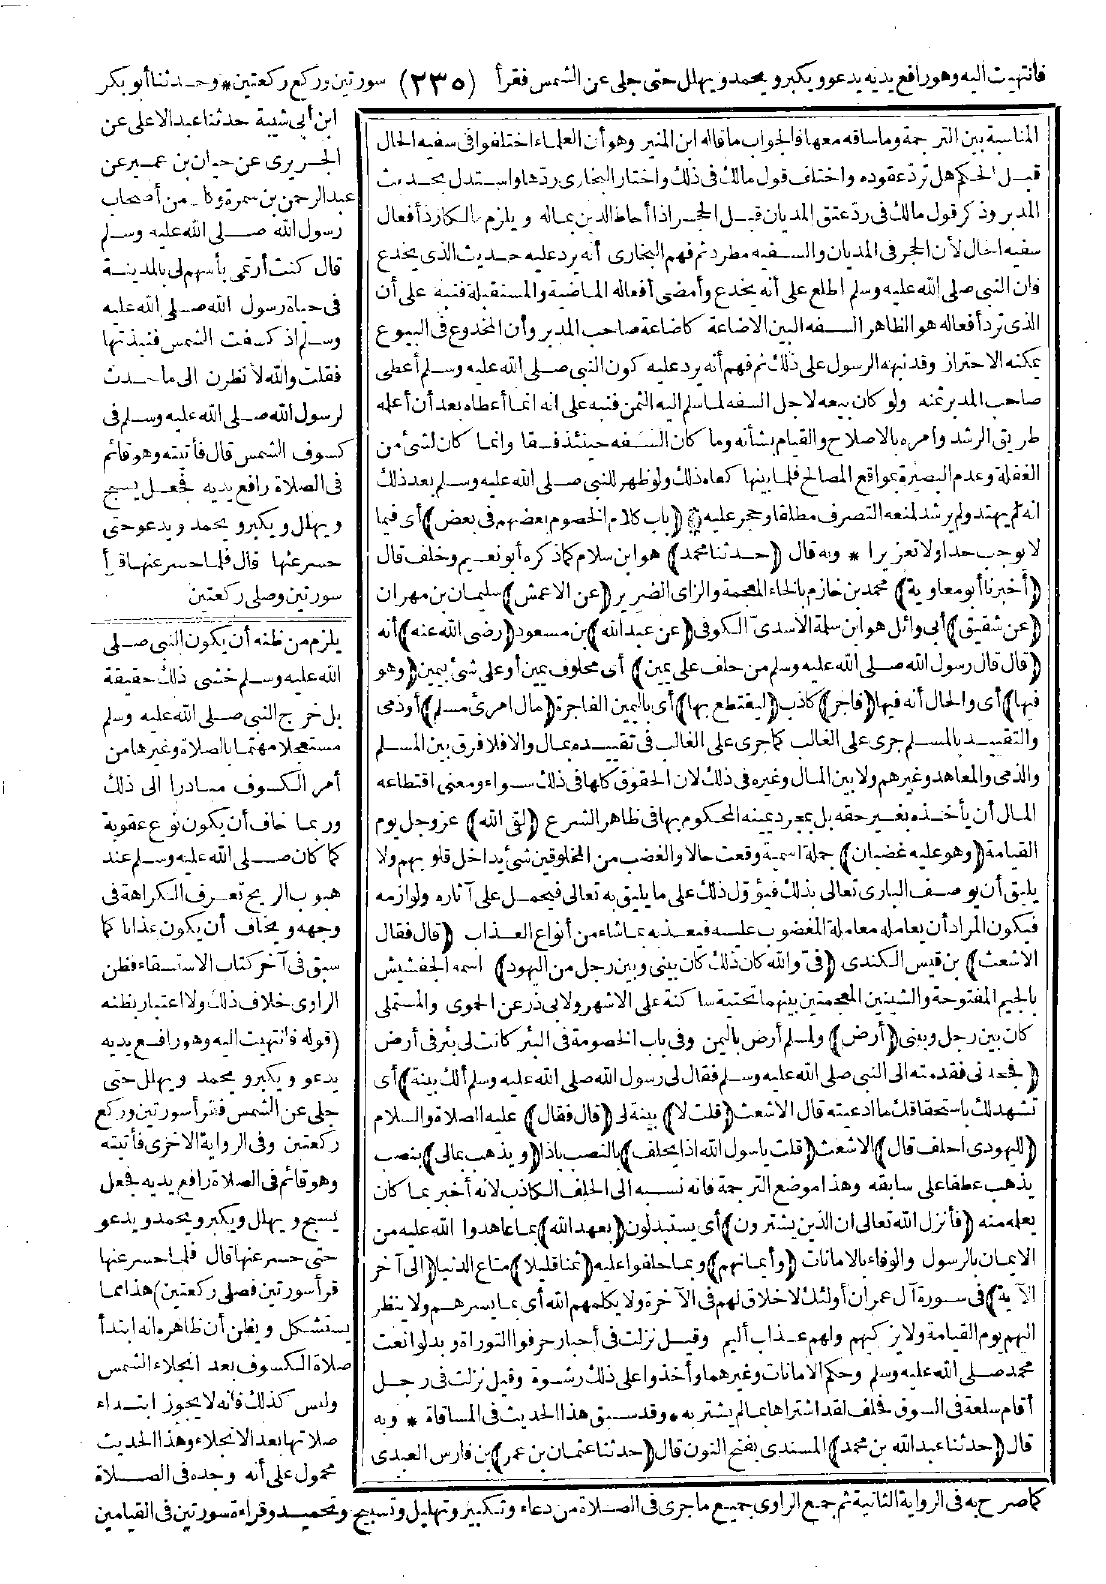 فانتهيت اليه وهو رافع يديه يدعو ويكبر ويحمد ويهلل حتى جلى عن الشمس فقرأ (٢٣٥) سورتين وركع ركعتين * وحدثنا أبو بكر
ابن أبي شيبة حدثنا عبد الاعلى عن
الجريرى عن حيان بن عمير عن
عبد الرحمن بن سمرة وكان من أصحاب
رسول الله صلى الله عليه وسلم
قال كنت أرتمى بأسهم لى بالمدينة
فى حياة رسول الله صلى الله عليه
وسلم اذ كسفت الشمس فنبذتها
فقلت والله لأنظرن الى ما حدث
لرسول الله صلى الله عليه وسلم فى
كسوف الشمس قال فأتيته وهو قائم
فى الصلاة رافع يديه فجعل يسبح
ويهلل ويكبر ويحمد ويدعو حتى
حسر عنها قال فلما حسر عنها قرأ
سورتين وصلى ركعتين
يلزم من ظنه أن يكون النبى صلى
الله عليه وسلم خشى ذلك حقيقة
بل خرج النبى صلى الله عليه وسلم
مستعجلا مهتما بالصلاة وغيرها من
أمر الكسوف مبادرا الى ذلك
وربما خاف أن يكون نوع عقوبة
كما كان صلى الله عليه وسلم عند
هبوب الريح تعرف الكراهة فى
وجهه ويخاف أن يكون عذابا كما
سبق فى آخر كتاب الاستسقاء فظن
الراوى خلاف ذلك ولا اعتبار بظنه
(قوله فانتهيت اليه وهو رافع يديه
يدعو ويكبر ويحمد ويهلل حتى
جلى عن الشمس فقرأ سورتين وركع
ركعتين وفى الرواية الاخرى فأتيته
وهو قائم فى الصلاة رافع يديه فجعل
يسبح ويهلل ويكبر ويحمد ويدعو
حتى حسر عنها قال فلما حسر عنها
قرأ سورتين فصلى ركعتين) هذا مما
يستشكل ويظن أن ظاهره انه ابتدأ
صلاة الكسوف بعد انجلاء الشمس
وليس كذلك فانه لا يجوز ابتداء
صلاتها بعد الانجلاء وهذا الحديث
محمول على أنه وجده فى الصلاة
المناسبة بين الترجمة وما ساقه معها فالجواب ما قاله ابن المنير وهو أن العلماء اختلفوا فى سفيه الحال
قبل الحكم هل تردّ عقوده واختلف قول مالك فى ذلك واختار البخارى ردها واستدل بحديث
المدبر وذكر قول مالك فى رد عتق المديان قبل الحجر اذا أحاط الدين بماله ويلزم مالكا رد أفعال
سفيه الحال لأن الحجر فى المديان والسفيه مطرد ثم فهم البخارى أنه يرد عليه حديث الذى يخدع
فان النبى صلى الله عليه وسلم اطلع على أنه يخدع وأمضى أفعاله الماضية والمستقبلة فنبه على أن
الذى ترد أفعاله هو الظاهر السفه البين الاضاعة كاضاعة صاحب المدبر وأن المخدوع فى البيوع
يمكنه الاحتراز وقد نبهه الرسول على ذلك ثم فهم أنه يرد عليه كون النبى صلى الله عليه وسلم أعطى
صاحب المدبر ثمنه ولو كان بيعه لاجل السفه لما سلم اليه الثمن فنبه على انه انما أعطاه بعد أن أعلمه
طريق الرشد وأمره بالاصلاح والقيام بشأنه وما كان السفه حينئذ فسقا وانما كان لشئ من
الغفلة وعدم البصيرة بمواقع المصالح فلما بينها كفاه ذلك ولو ظهر للنبى صلى الله عليه وسلم بعد ذلك
انه لم يهتد ولم يرشد لمنعه التصرف مطلقا وحجر عليه (باب كلام الخصوم بعضهم فى بعض) أى فيما
لا يوجب حدا ولا تعزيرا * وبه قال (حدثنا محمد) هو ابن سلام كما ذكره أبو نعيم وخلف قال
(أخبرنا أبو معاوية) محمد بن خازم بالخاء المعجمة والزاى الضرير (عن الاعمش) سليمان بن مهران
(عن شقيق) أبى وائل هو ابن سلمة الاسدىّ الكوفى (عن عبد الله) بن مسعود (رضى الله عنه) أنه
(قال قال رسول الله صلى الله عليه وسلم من حلف على يمين) أى محلوف يمين أو على شئ بيمين (وهو
فيها) أى والحال أنه فيها (فاجر) كاذب (ليقتطع بها) أى باليمين الفاجرة (مال امرئ مسلم) أو ذمى
والتقييد بالمسلم جرى على الغالب كما جرى على الغالب فى تقييده بمال والافلا فرق بين المسلم
والذمى والمعاهد وغيرهم ولا بين المال وغيره فى ذلك لان الحقوق كلها فى ذلك سواء ومعنى اقتطاعه
المال أن يأخذه بغير حقه بل بمجرد يمينه المحكوم بها فى ظاهر الشرع (لقى الله) عز وجل يوم
القيامة (وهو عليه غضبان) جملة اسمية وقعت حالا والغضب من المخلوقين شئ يداخل قلوبهم ولا
يليق أن يوصف البارى تعالى بذلك فيؤوّل ذلك على ما يليق به تعالى فيحمل على آثاره ولوازمه
فيكون المراد أن يعامله معاملة المغضوب عليه فيعذبه بما شاء من أنواع العذاب (قال فقال
الاشعث) بن قيس الكندى (فىّ والله كان ذلك كان بينى وبين رجل من اليهود) اسمه الجفشيش
بالجيم المفتوحة والشينين المعجمتين بينهما تحتية ساكنة على الاشهر ولابى ذر عن الحموى والمستملى
كان بين رجل وبينى (أرض) ولمسلم أرض باليمن وفى باب الخصومة فى البئر كانت لى بئر فى أرض
(فجحدنى فقدمته الى النبى صلى الله عليه وسلم فقال لى رسول الله صلى الله عليه وسلم ألك بينة) أى
تشهد لك باستحقاقك ما ادعيته قال الاشعث (قلت لا) بينة لى (قال فقال) عليه الصلاة والسلام
(لليهودى احلف قال) الاشعث (قلت يا رسول الله اذا يحلف) بالنصب باذا (ويذهب بمالى) بنصب
يذهب عطفا على سابقه وهذا موضع الترجمة فانه نسبه الى الحلف الكاذب لانه أخبر بما كان
يعلمه منه (فأنزل الله تعالى ان الذين يشترون) أى يستبدلون (بعهد الله) بما عاهدوا الله عليه من
الايمان بالرسول والوفاء بالامانات (وأيمانهم) وبما حلفوا عليه (ثمنا قليلا) متاع الدنيا (الى آخر
الآية) فى سورة آل عمران أولئك لا خلاق لهم فى الآخرة ولا يكلمهم الله أى بما يسرهم ولا ينظر
اليهم يوم القيامة ولا يزكيهم ولهم عذاب أليم وقيل نزلت فى أحبار حرفوا التوراة وبدلوا نعت
محمد صلى الله عليه وسلم وحكم الامانات وغيرهما وأخذوا على ذلك رشوة وقيل نزلت فى رجل
أقام سلعة فى السوق فحلف لقد اشتراها بما لم يشتر به * وقد سبق هذا الحديث فى المساقاة * وبه
قال (حدثنا عبد الله بن محمد) المسندى بفتح النون قال (حدثنا عثمان بن عمر) بن فارس العبدى
كما صرح به فى الرواية الثانية ثم جمع الراوى جميع ما جرى فى الصلاة من دعاء وتكبير وتهليل وتسبيح وتحميد وقراءة سورتين فى القيامين